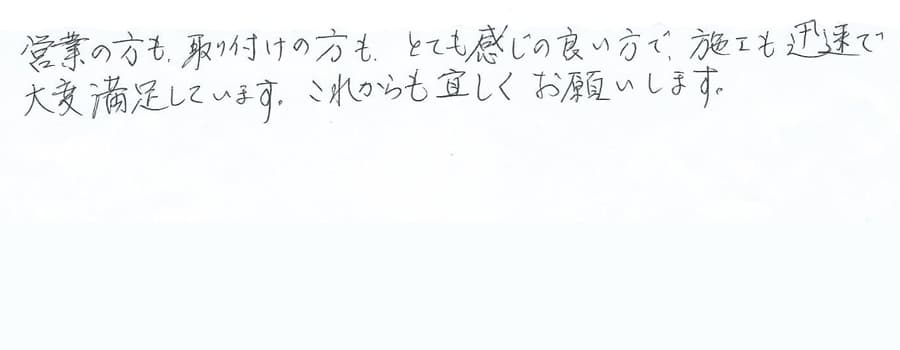 営業の方も、取り付けの方も、とても感じの良い方で、施工も迅速で
大変満足しています。これからも宜しくお願いします。